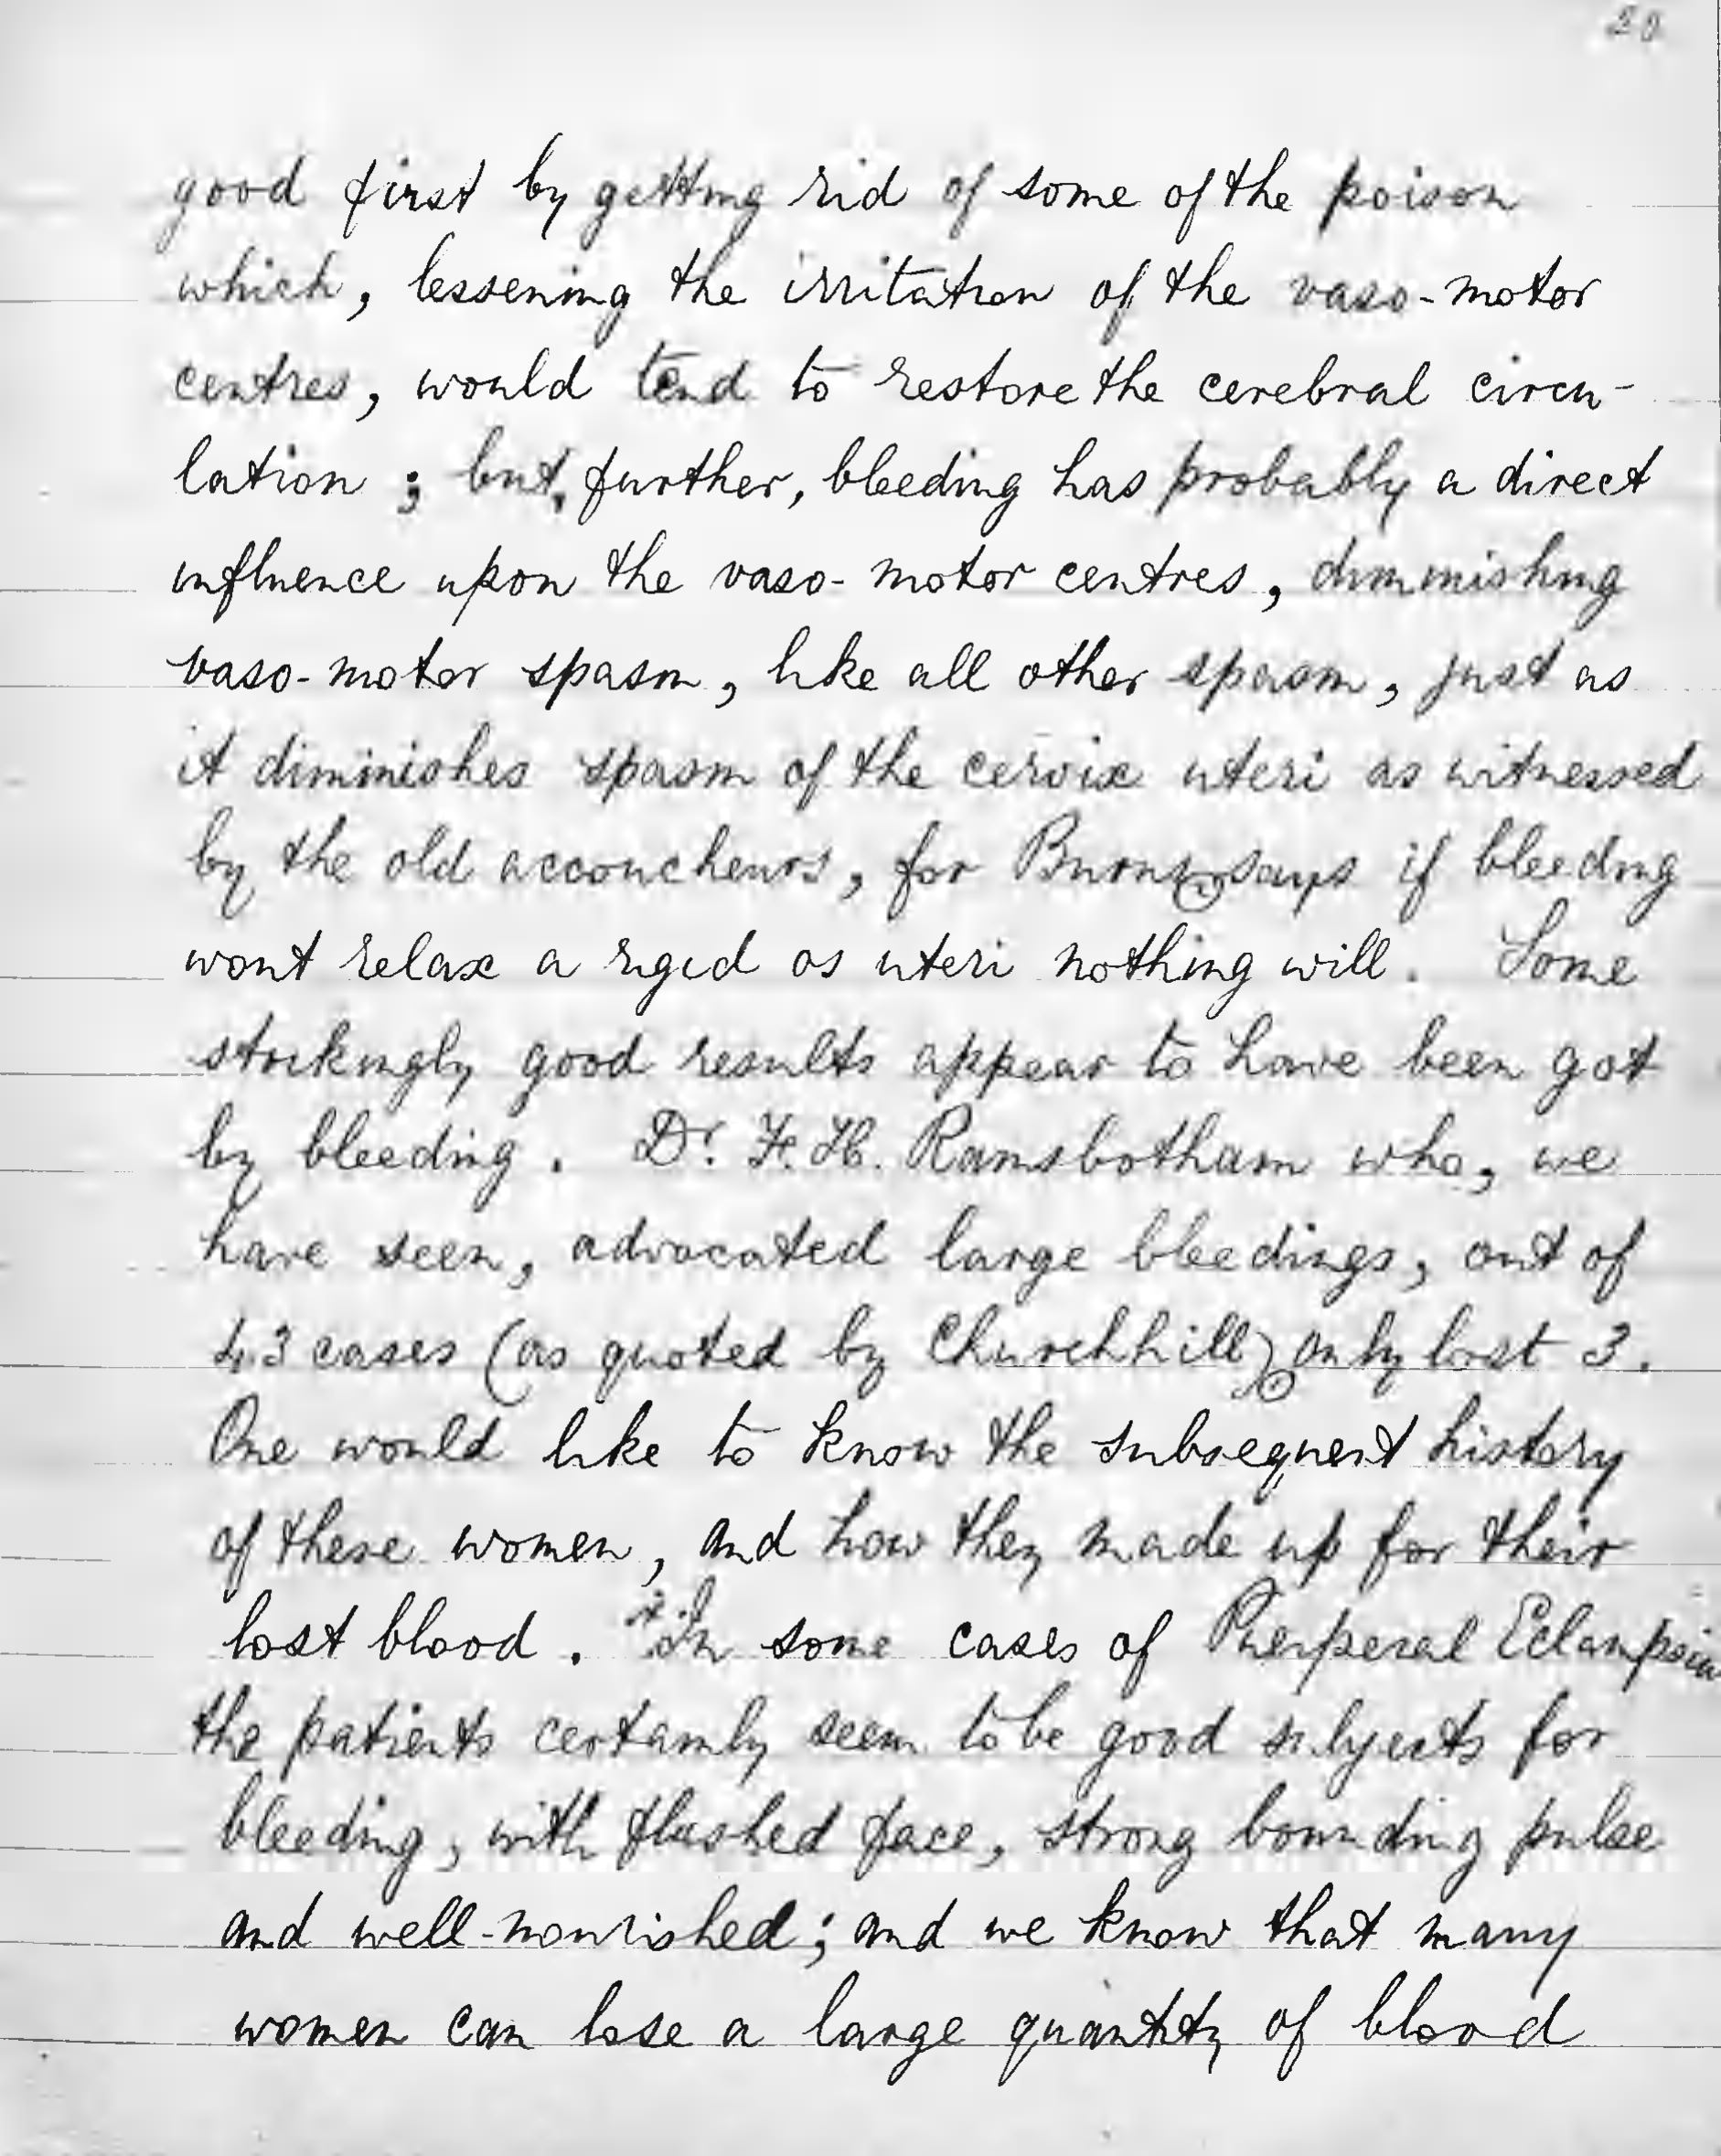 good first by getting rid of some of the poison
which, lessening the irritation of the vaso-motor
centres, would tend to restore the cerebral circu-
lation; but, further, bleeding has probably a direct
influence upon the vaso-motor centres, diminishing
vaso-motor spasm, like all other spasm, just as
it diminishes spasm of the cervix uteri as witnessed
by the old accoucheurs, for Burns says if bleeding
wont relax a rigid os uteri nothing will. Some
strikingly good results appear to have been got
by bleeding. Dr. F. H. Ramsbotham who, we
have seen, advocated large bleedings, out of
43 cases (as quoted by Churchhill) only lost 3.
One would like to know the subsequent history
of these women, and how they made up for their
lost blood. In some cases of Puerperal Eclampsia
the patients certainly seem to be good subjects for
bleeding, with flushed face, strong bounding pulse
and well-nourished; and we know that many
women can lose a large quantity of blood